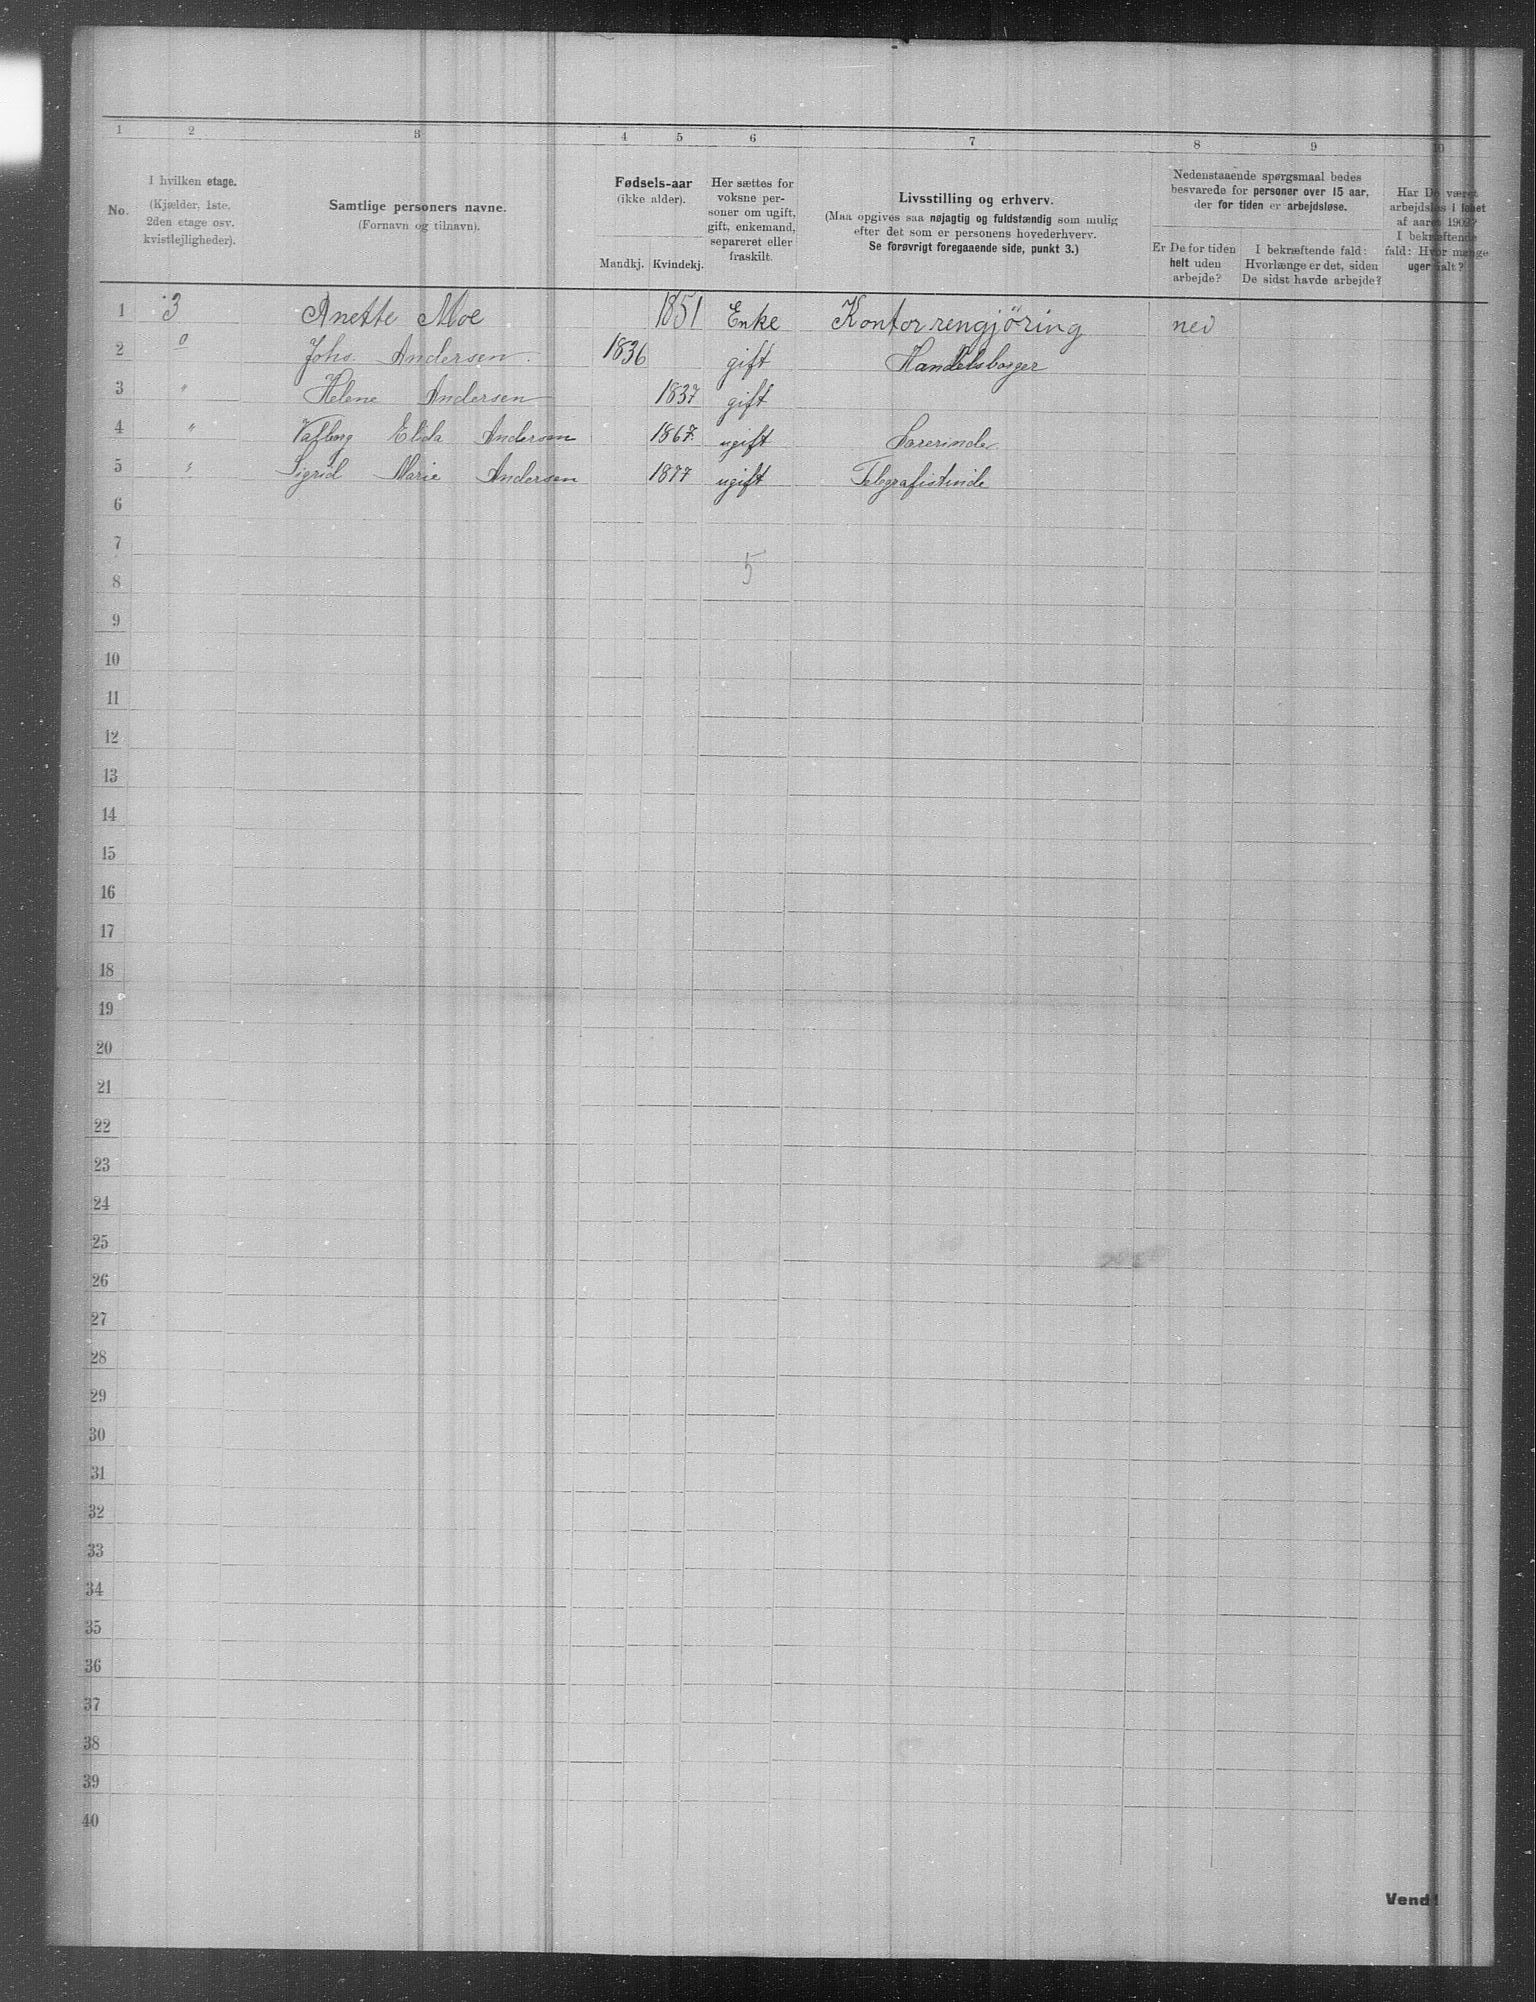 1 2 3 4 5 6 7 8 9 10
No.
I hvilken etage.
(Kjælder, 1ste,
2den etage osv.
kvistlejligheder).
Samtlige personers navne.
(Fornavn og tilnavn).
Fødsels-aar
(ikke alder).
Mandkj. Kvindekj.
Her sættes for
voksne per-
soner om ugift,
gift, enkemand,
separeret eller
fraskilt.
Livsstilling og erhverv.
(Maa opgives saa nøjagtig og fuldstændig som mulig
efter det som er personens hovederhverv.
Se forøvrigt foregaaende side, punkt 3.)
Nedenstaaende spørgsmaal bedes
besvarede for personer over 15 aar,
der for tiden er arbejdsløse.
Er De for tiden
helt uden
arbejde?
I bekræftende fald:
Hvorlænge er det, siden
De sidst havde arbejde?
Har De været
arbejdsløs i løbet
af aaret 1902?
I bekræftende
fald: Hvor mange
uger ialt?
1 3 Anette Moe 1851 Enke Kontorrengjöring nei
2 0 Johs. Andersen. 1836 gift Handelsborger
3 " Helene Andersen 1837 gift
4 " Valborg Elida Andersen 1867 ugift Lærerinde
5 " Sigrid Marie Andersen 1877 ugift Telegrafistinde
6
7
5
8
9
10
11
12
13
14
15
16
17
18
19
20
21
22
23
24
25
26
27
28
29
30
31
32
33
34
35
36
37
38
39
40
Vend!